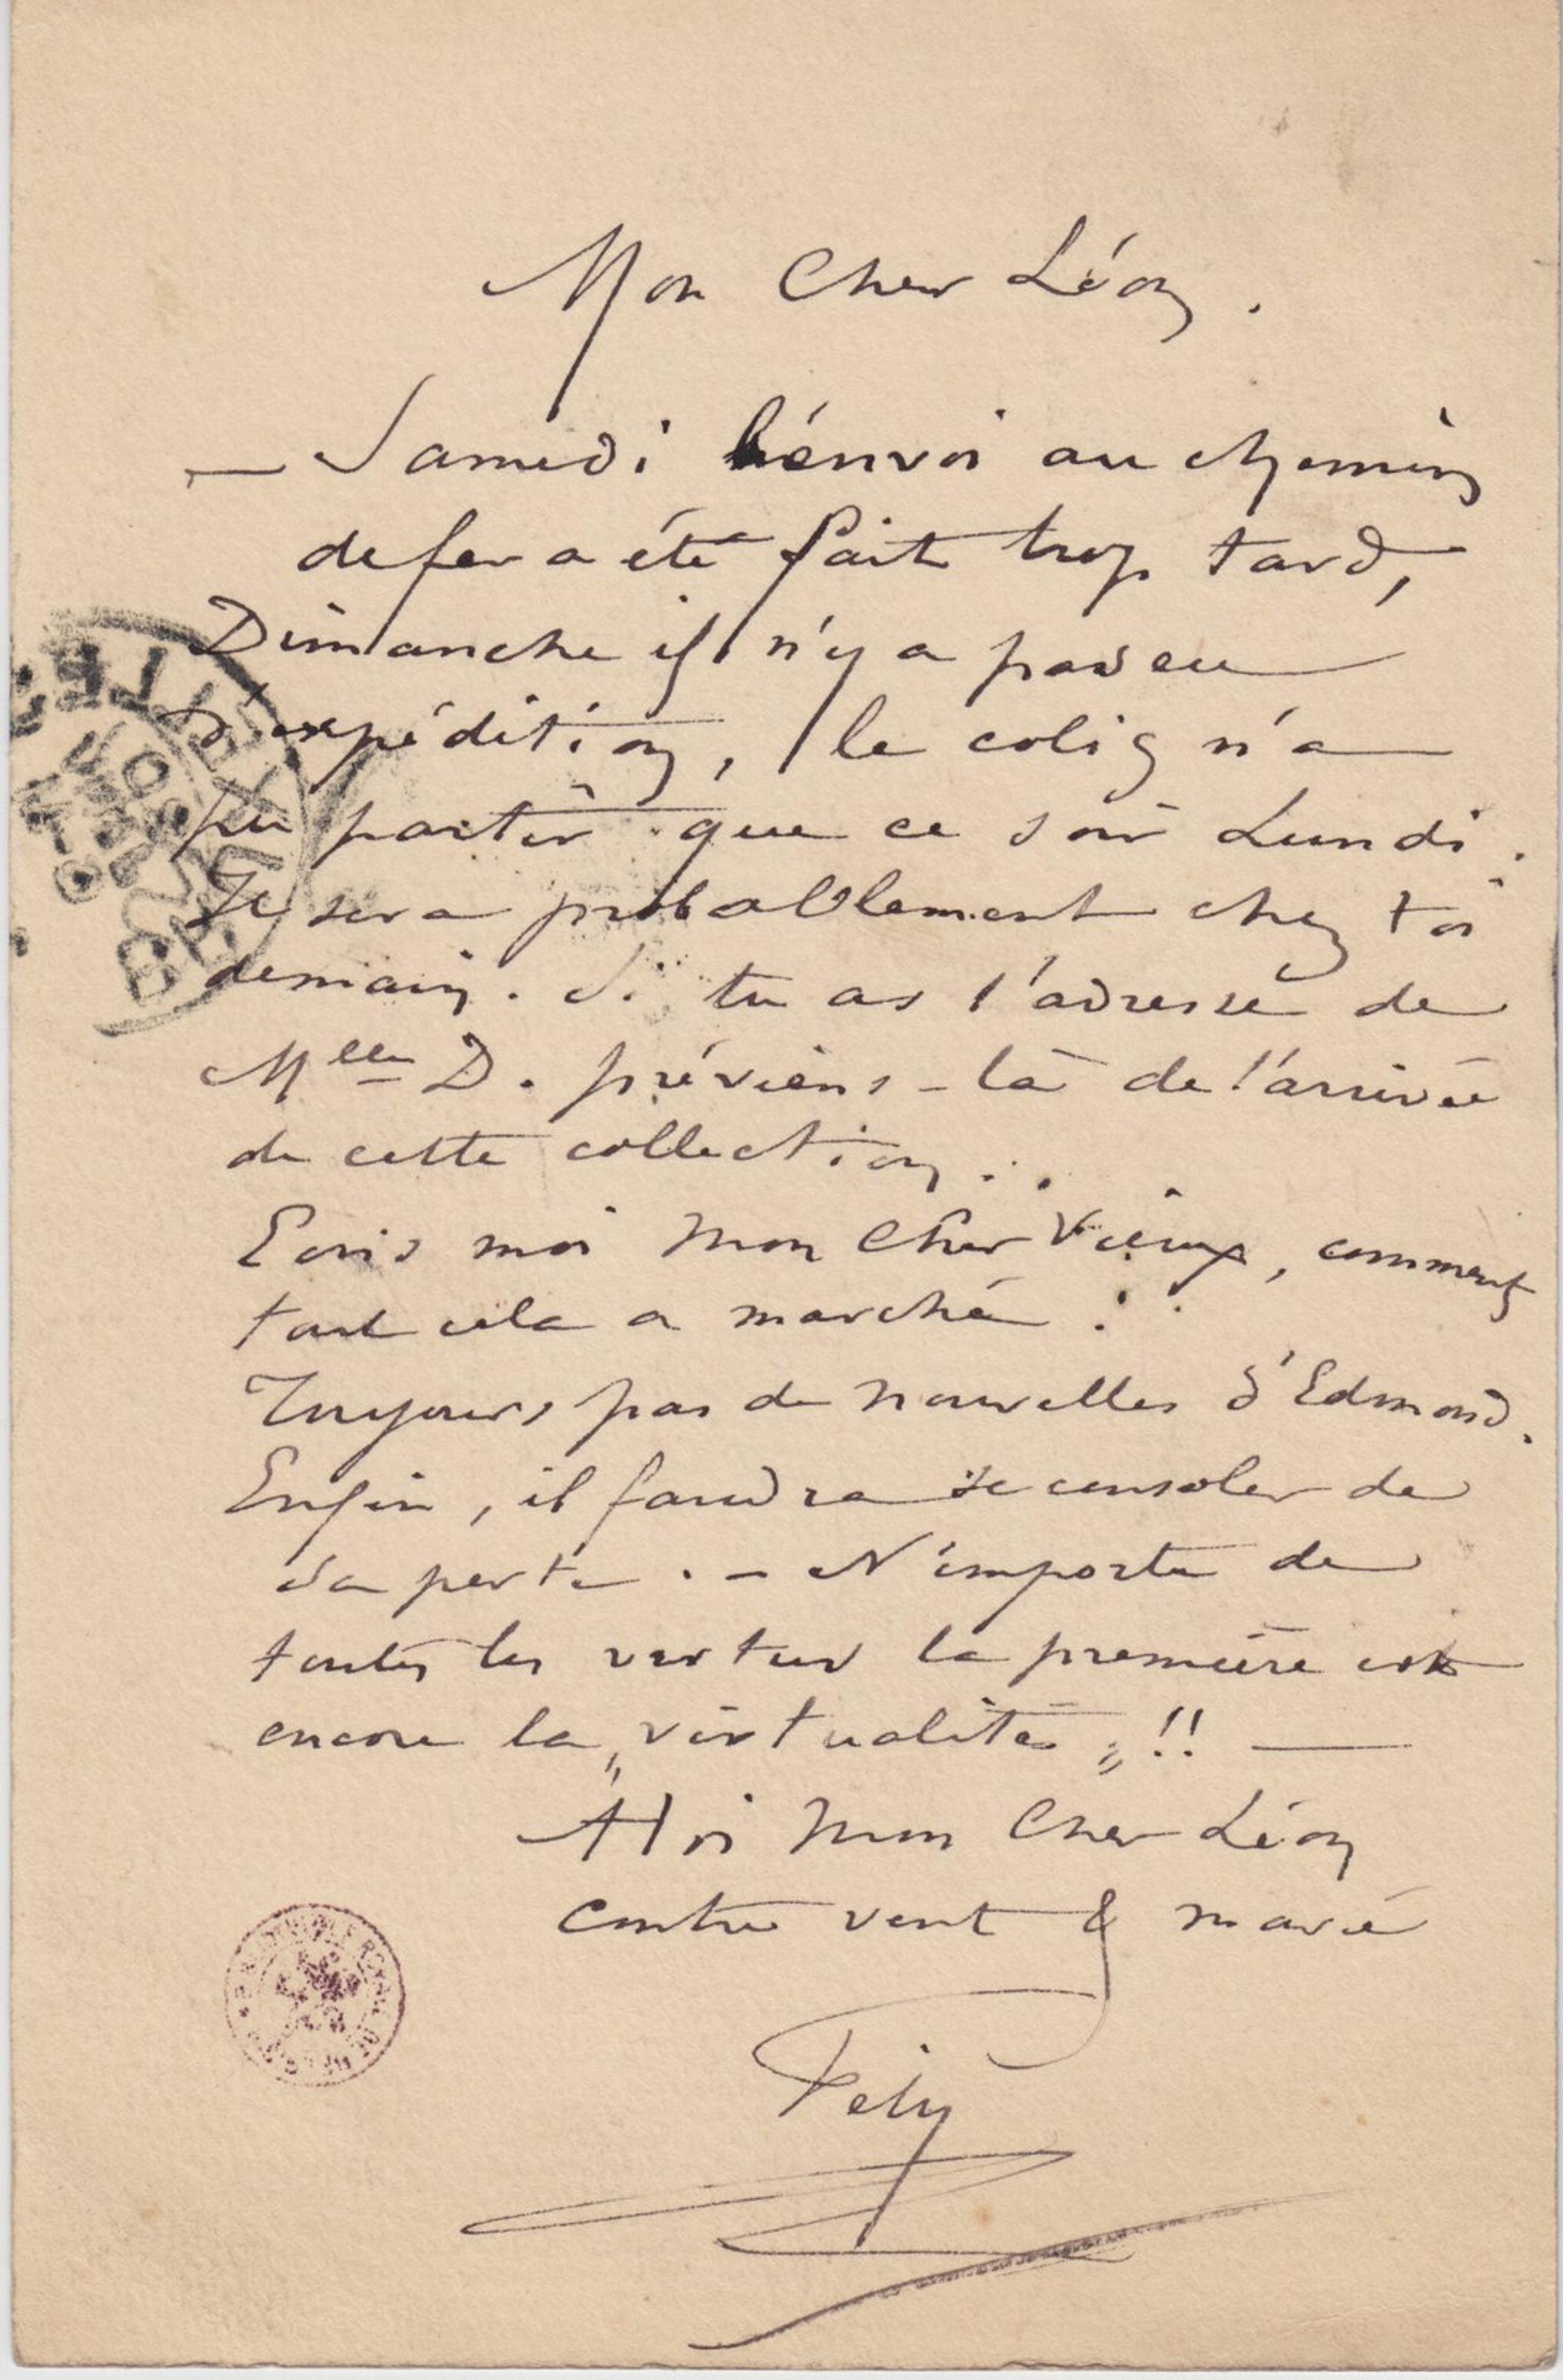 Mon Cher Léon.
— Samedi l'envoi au chemin
de fer a été fait trop tard,
Dimanche il n'y a pas eu
d'expédition, le colis n'a
pu partir que ce soir Lundi.
Il sera probablement chez toi
demain. Si tu as l'adresse de
Mlle D. préviens-la de l'arrivée
de cette collection..
Ecris moi mon Cher Vieux, comment
tout cela a marché!.
Toujours pas de nouvelles d'Edmond.
Enfin, il faudra se consoler de
sa perte. – N'importe de
toutes les vertus la première est
encore la „virtualité„!! —
A toi mon Cher Léon
contre vent & marée
Fély